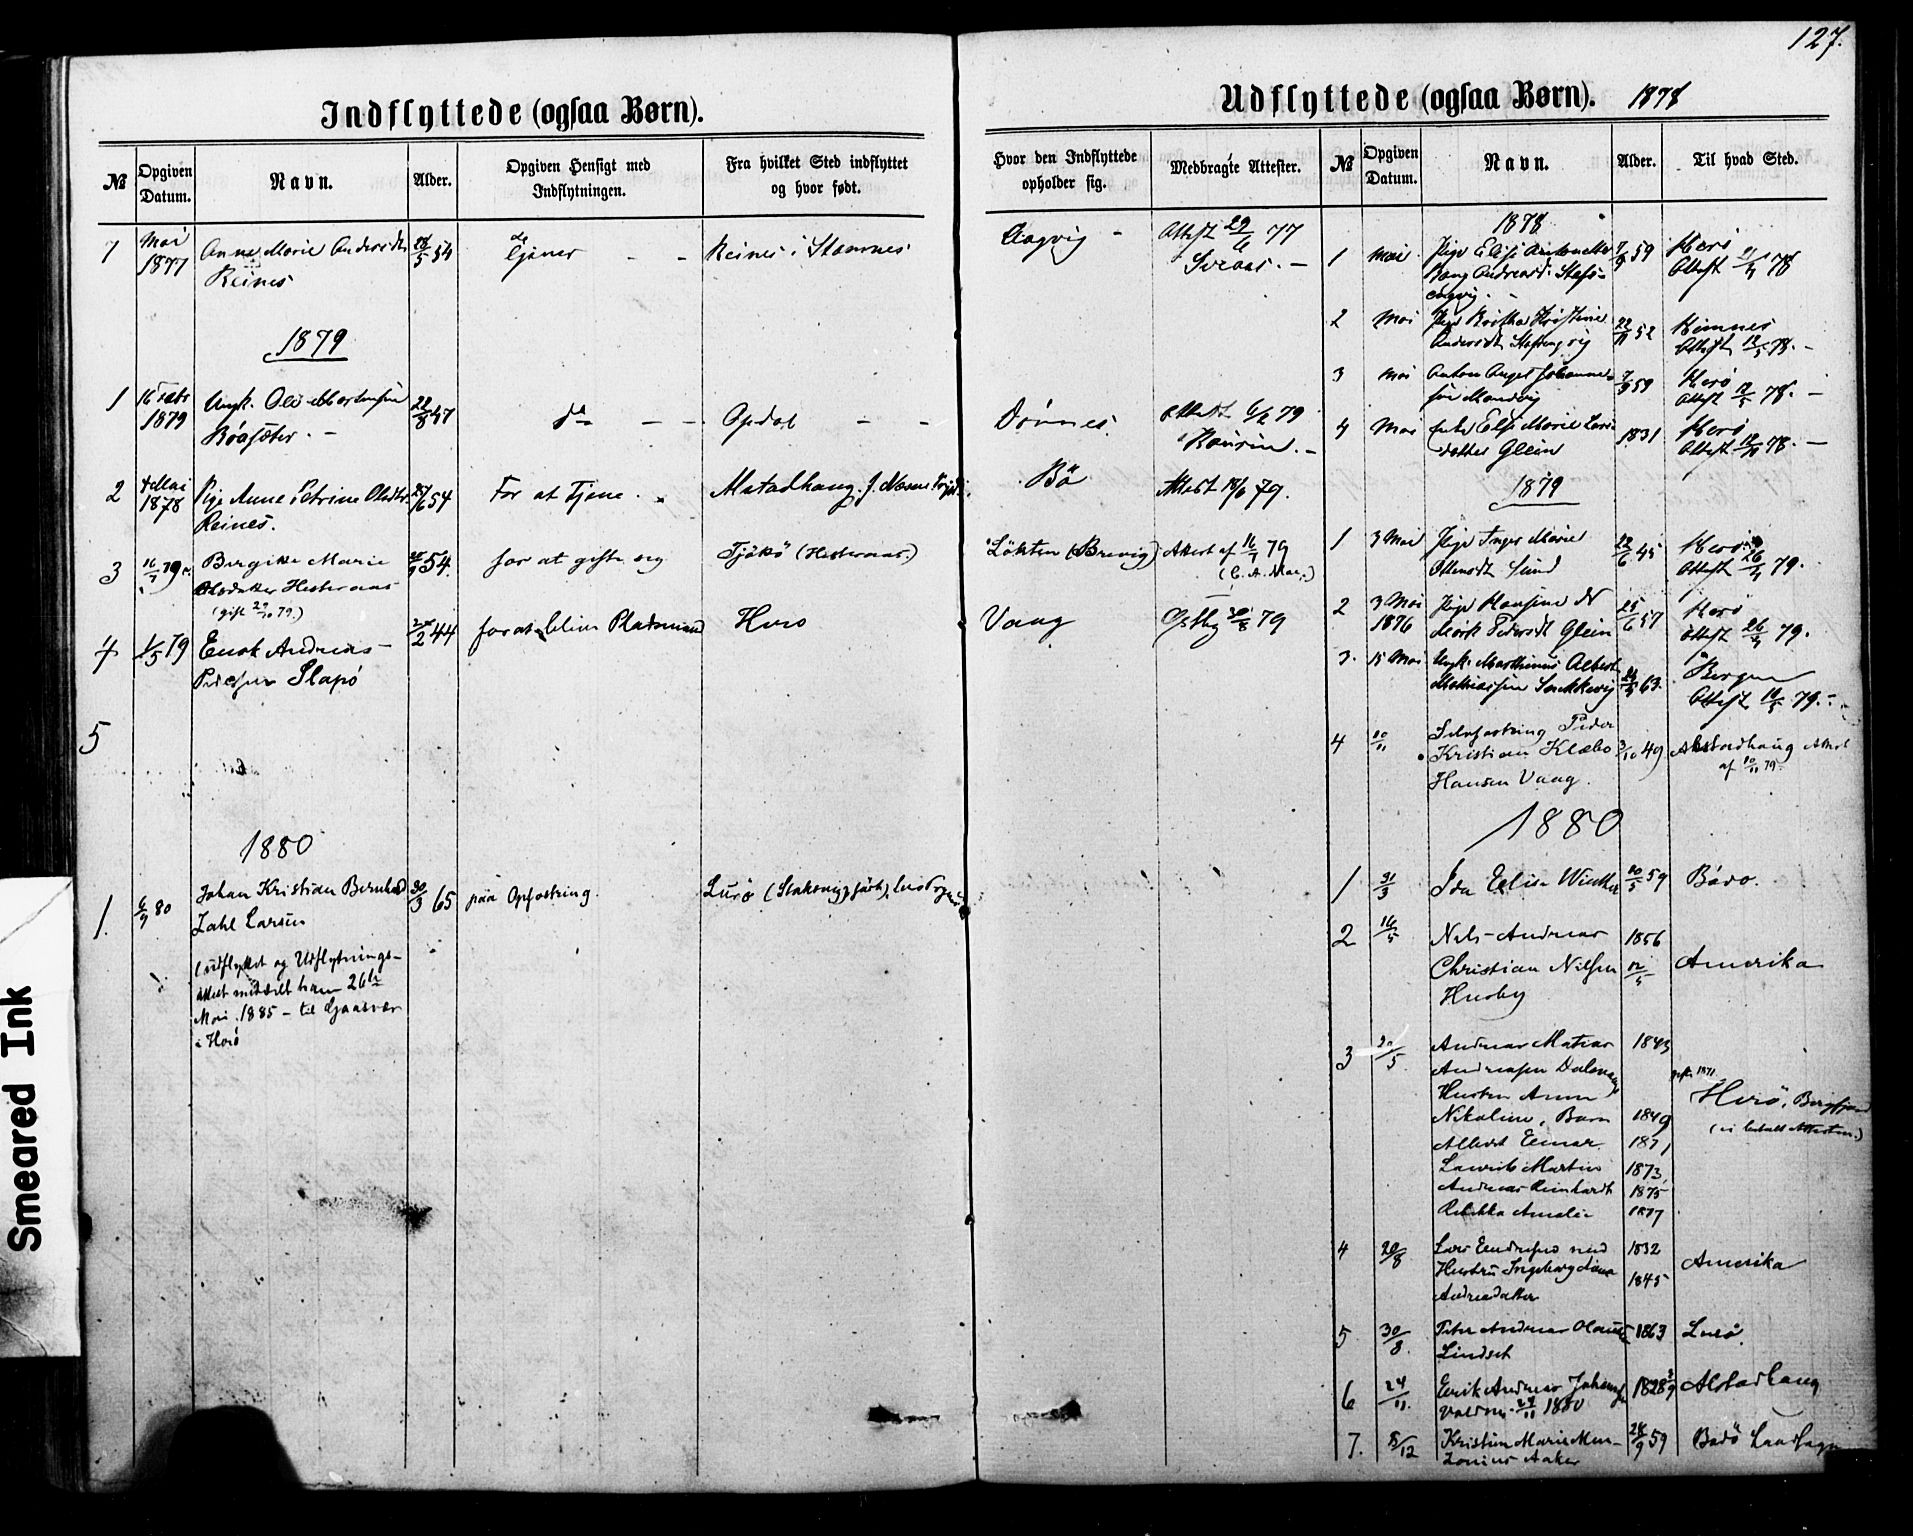 127.
Indflyttede (ogsaa Børn).
№ Opgiven Datum. Navn. Alder. Opgiven Hensigt med Indflytningen. Fra hvilket Sted indflyttet og hvor født.
Hvor den Indflyttede opholder sig. Medbragte Attester.
7 Mai 1877 Anne Marie Andersdtr Reines 5 54 Tjener Reines i Stamnes
Aagvig Attest 29/6 77
1879
1 16 Febr 1879 Ungk. Ole Mortensen 22/8 47 do Opdal
Dønnes Attest 6/2 79
2 4 Mai 1878 Pige Anne Petrine Olsdtr Reines. 54 For at Tjene
Bø Attest 18/6 79.
3 16/7 79 Bergitte Marie
Olsdatter Hesteraas 54. for at gifte sig Tjøtø (Hesteraas)
(gift 29/10 79.)
Løkten (Brevig) Attest af 16/7 79
4 1/5 79 Enok Andreas
Pedersen Slapø 2 44 for at blive Pladsmand Herø
Vaag 8 79
5
1880
1. 6/9 80 Johan Kristian Bernhard
Zahl Larsen 30/3 65 paa Opfostring. Lurø
(udflyttet og Udflytnings-
attest meddelt ham 26de
Mai 1885 - til Gaasvær
i Herø
Udflyttede (ogsaa Børn). 1878
№ Opgiven Datum. Navn. Alder. Til hvad Sted.
1878
1 Mai Pige Elise Antonette 7/9 59 Herø
Attest 11/4 78
2 Mai Pige Kristine 22/11 52
Attest 12/5 78.
3 Mai Anton Angel Johannes- 7/9 59 Herø
sen Attest 12/5 78.
4 Mai Enke Else Marie Lars-
datter Glein 1831 Herø
Attest 78.
1879
1 3 Mai Pige Inger Marie 22/6 45 Herø
Sund Attest 26/4 79.
2 3 Mai 1876 Pige Hansine
Mørk Pedersdt Glein 25/6 57 Herø
Attest 26/4 79.
3. 15 Mai Ungk. Marthinus Albert
Mathiassen 63. Bergen
Attest 16/5 79.
4 10/11 Peder
Kristian Klæbo 3/10 49 Alstadhaug Attest
Hansen Vaag. af 10/11 79.
1880
1 31/3 Ida Elise Winther 20/5 59 Bodø.
2 16/5 Nils Andreas 1856
Christian Nilsen 12/5 Amerika
Husby
3 20/5 Andreas Matias 1843
Andreassen
Hustru Anna Herø,
Nikoline, Barn 1849
Albert Einar 1871
Laurits Martin 1873
Andreas Reinhardt 1875
Rebekka Amalie 1877
4 20/8 Lars Endresen med 1832
Hustru Ingeborg Anna 1845 Amerika
Andreasdatter
5 30/8. Peter Andreas 1863 Lurø
Lindset
6 24/11. Erik Andreas 1828 Alstadhaug
24/11 1880
7. 8/12 Kristine Marie 28/9 59 Bodø Landsogn
Aaker
Smeared Ink